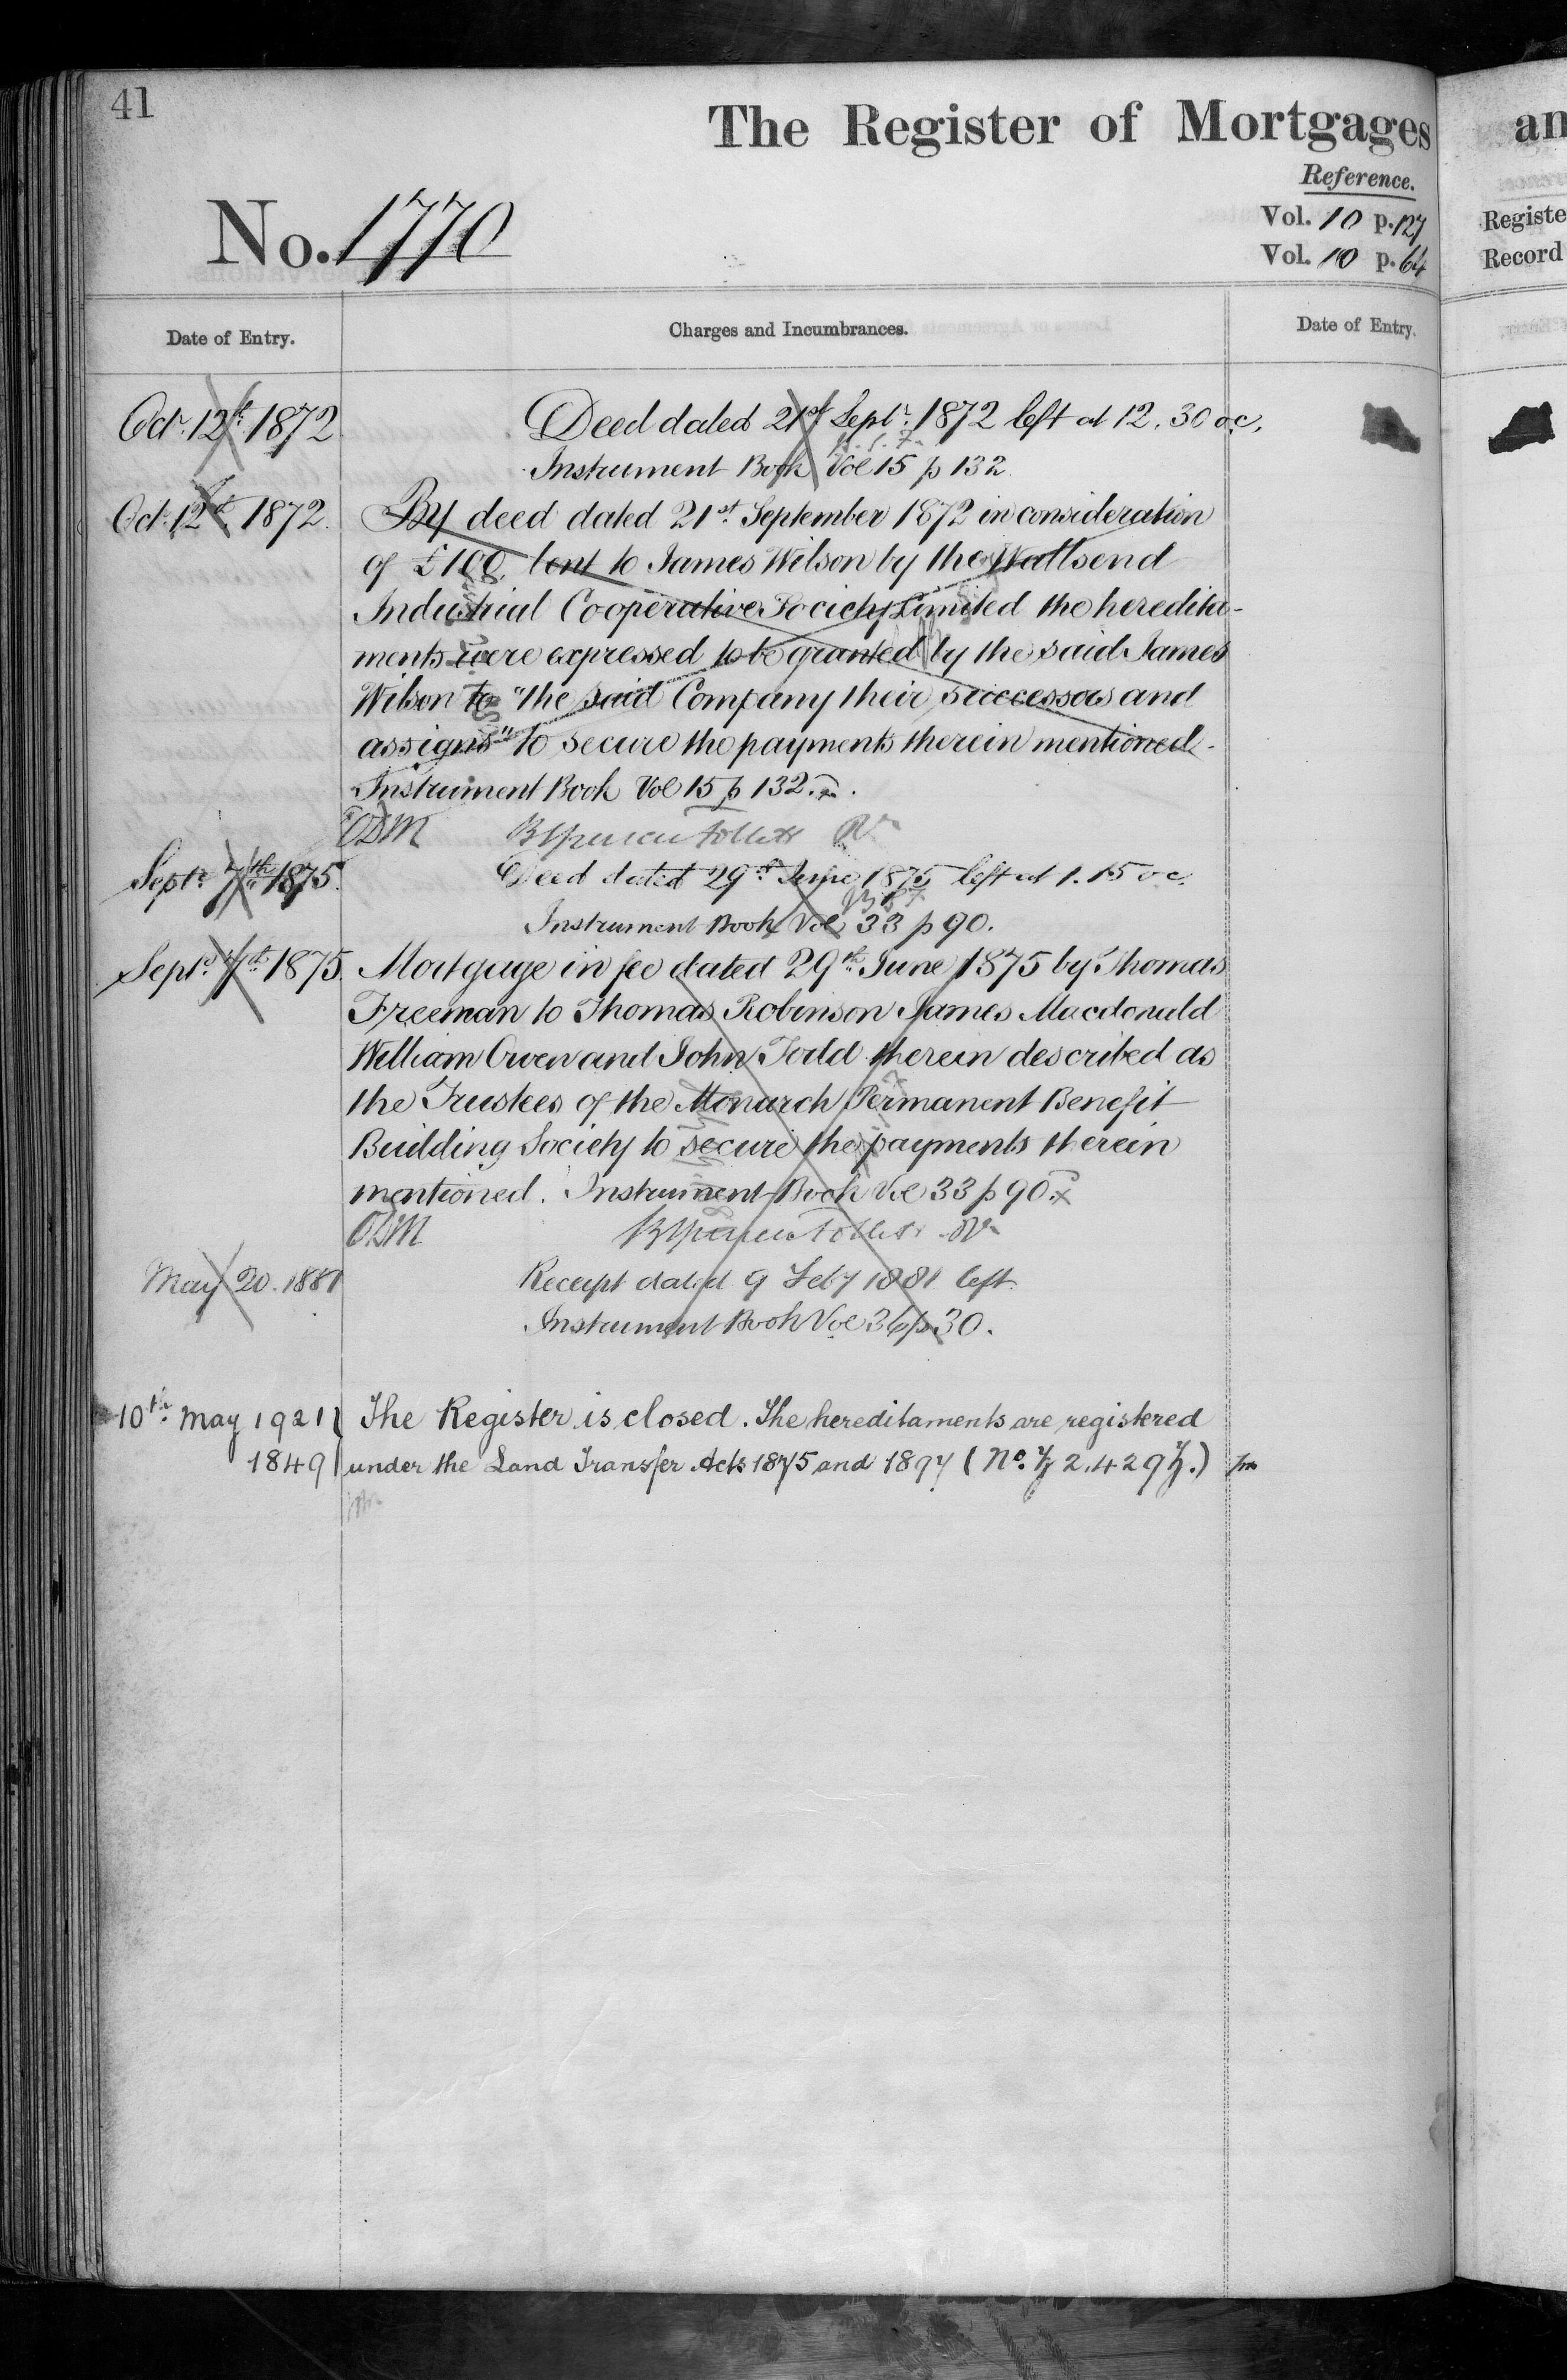 41
The Register of Mortgages
an
Reference.
No. 1770
Vol. 10 p. 127
Registe
Vol. 10 p. 64
Record
Date of Entry.
Charges and Incumbrances.
Date of Entry.
Octr. 12th 1872
Deed dated 21st Septr. 1872 left at 12.30 oc.
Instrument Book Vol 15 p 132
Oct. 12th 1872.
By deed dated 21st September 1872 in consideration
of £100 lent to James Wilson by the Wallsend
Industrial Cooperative Society Limited the heredita-
ments were expressed to be granted by the said James
Wilson to "the said Company their successors and
assigns" to secure the payments therein mentioned.
Instrument Book Vol 15 p 132.
ODM
Septr. 7th 1875.
Deed dated 29th June 1875 left at 1.15 oc.
Instrument Book Vol 33 p 90.
Septr. 7th 1875.
Mortgage in fee dated 29th June 1875 by Thomas
Freeman to Thomas Robinson James Macdonald
William Owen and John Todd therein described as
the Trustees of the Monarch Permanent Benefit
Building Society to secure the payments therein
mentioned. Instrument Book Vol 33 p 90.
ODM
May 20. 1881
Receipt dated 9 Feby 1881 left.
Instrument Book Vol 36 p 30.
10th May 1921
The Register is closed. The hereditaments are registered
1849
under the Land Transfer Acts 1875 and 1897 (No.